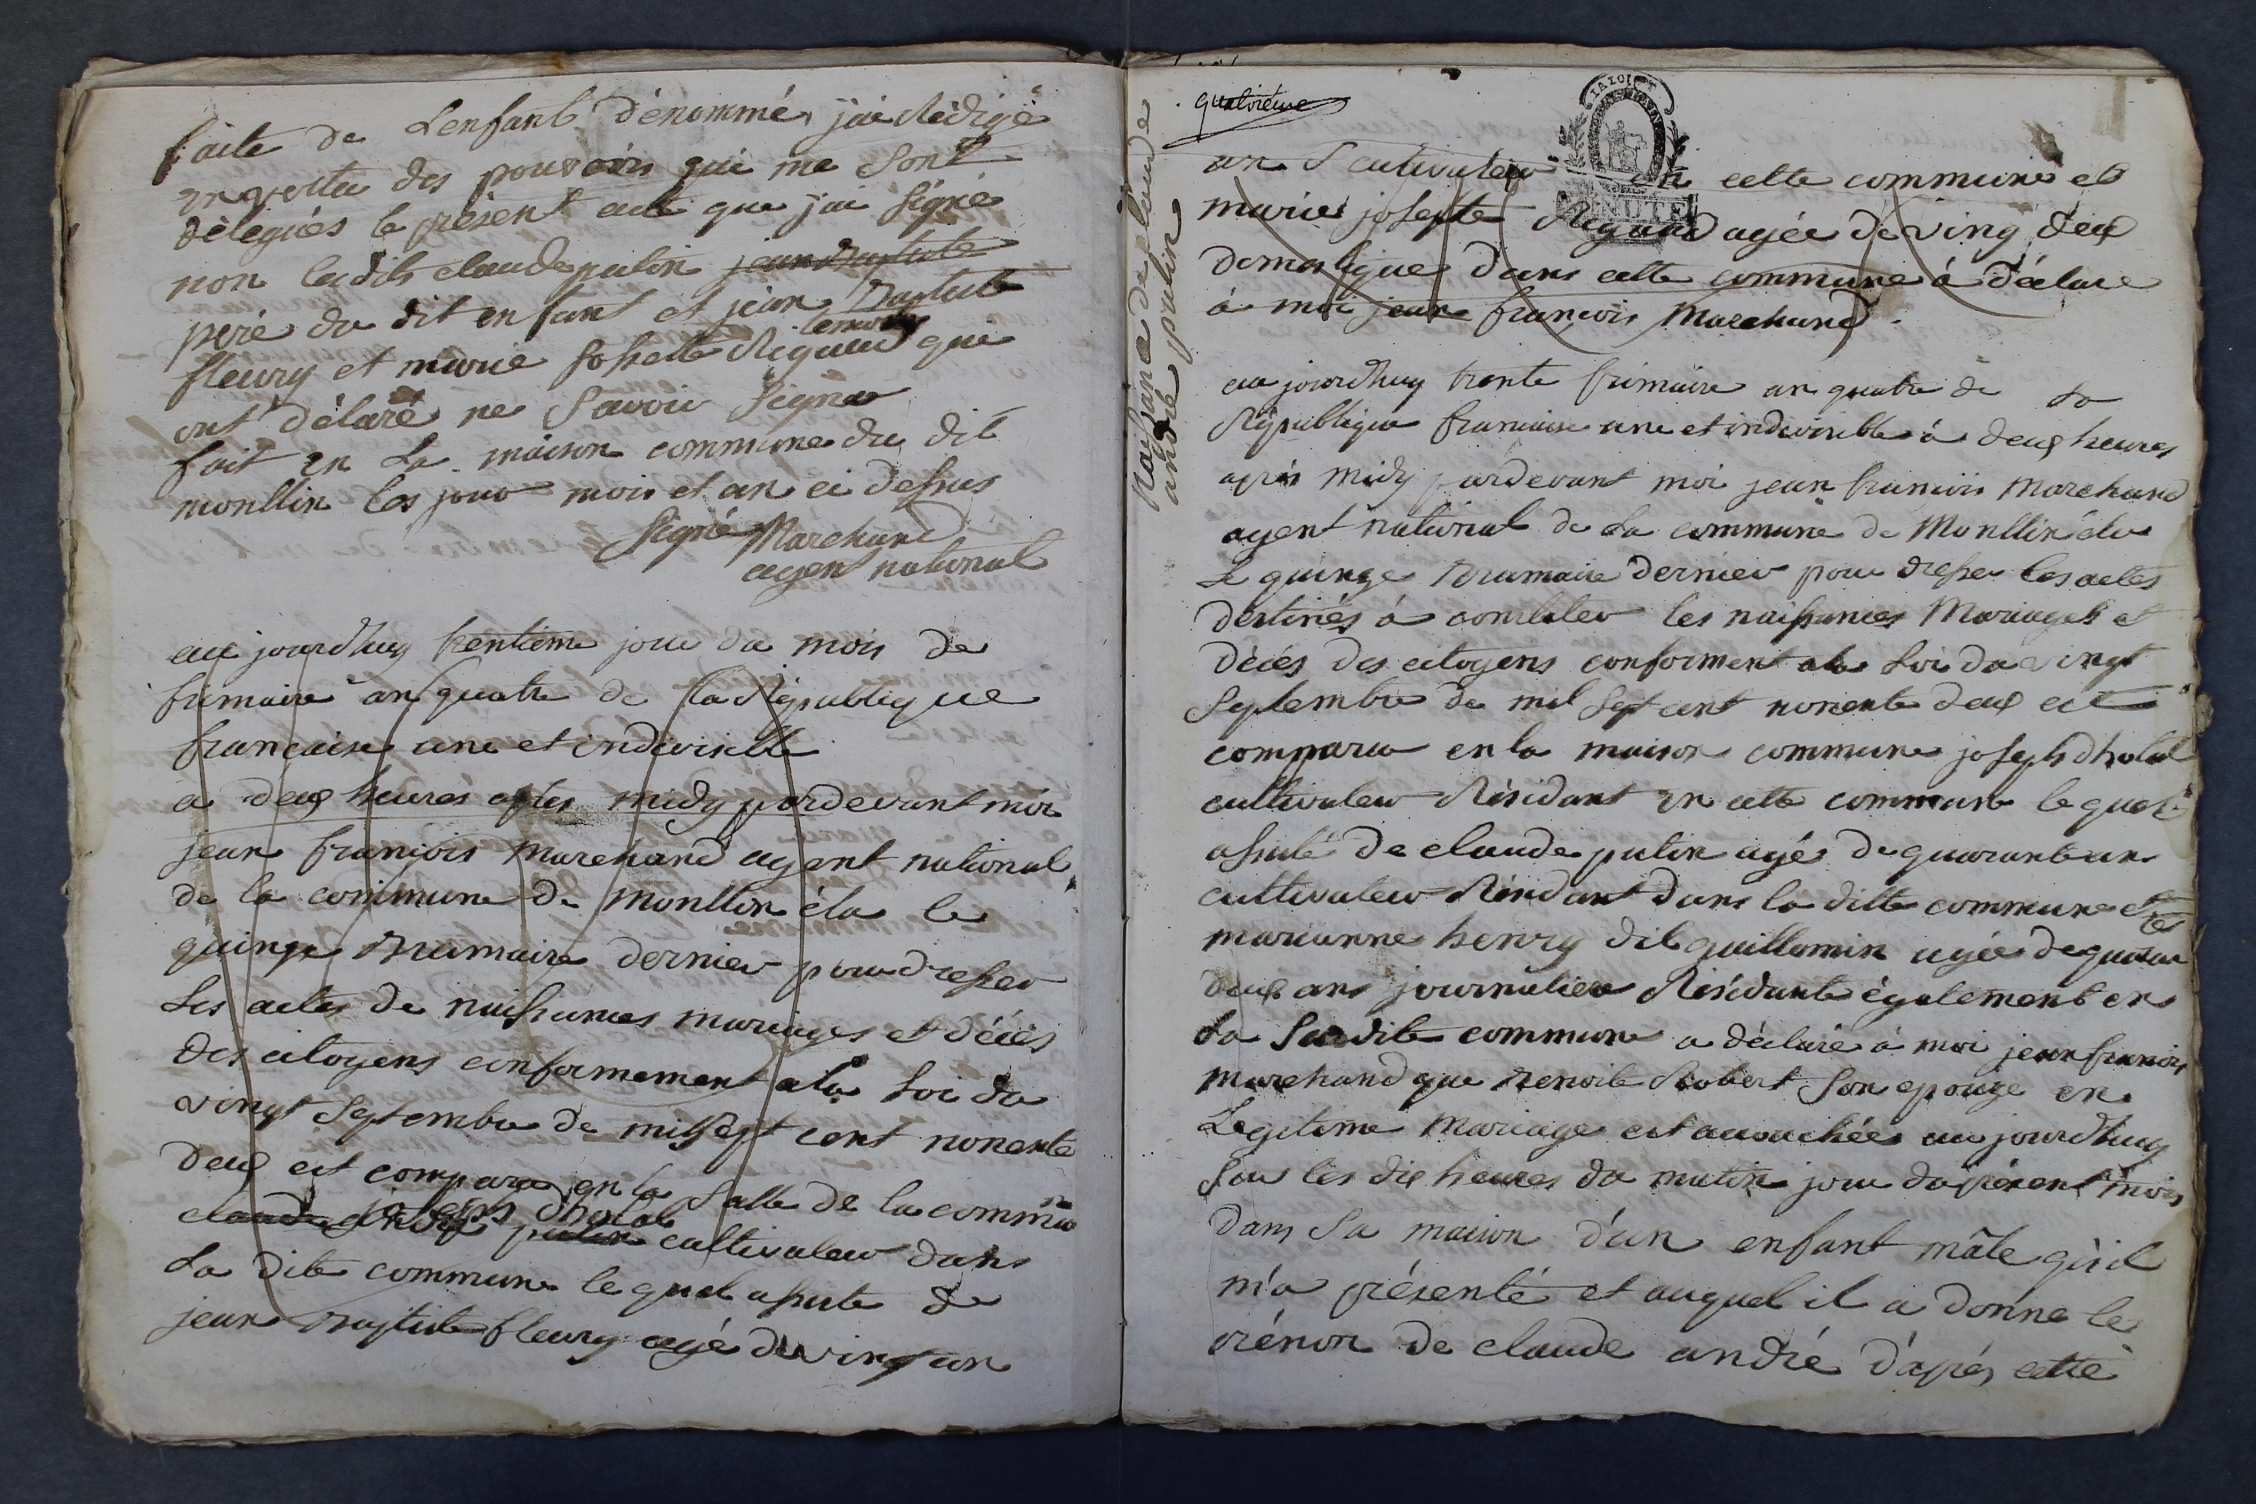 faite de Lenfant dénommé, jai Rédigé
en vertu des pouvoirs qui me sont
délégués le présent acte que jai signé
non lesdits claude putin jean Baptiste
père du dit enfant et jean Baptiste
fleury et marie Josephte Rigaud témoins qui
ont déclaré ne Savoir Signer
fait en La maison commune du dit
monllin les jour mois et an ci dessus
signé Marchand
agent national
au jourdhuy trentieme jour du mois de
frimaire an quatre de la République
francaise une et indivisible
a deux heures apres midy pardevant moi
jean françois marchand agent national
de la commune de monllin élu le
quinze Brumaire dernier pour dresser
Les actes de naissances mariages et décès
des citoyens conformement a la Loi du
vingt Septembre de mil Sept cent nonente
deux est comparu en la Salle de la commune
claude andré putin joseph dholal cultivateur dans
La dite commune lequel assisté de
jean Baptiste fleury agé de vingt un
quatrième
an S cultivateur en cette commune et
marie josephte Rigaud agée de ving deux
domestique dans cette commune à déclaré
à moi jean francois Marchand
MINUTE
LA LOI
Naissance de claude
andré putin
au jourdhuy trente frimaire an quatre de La
République francaise une et indivisible à deux heures
après midy pardevant moi jean francois Marchand
agent national de La commune de Monllin élu
Le quinze Brumaire dernier pour dresser les actes
destinés à constater les naissances Mariages et
décès des citoyens conforment a la Loi du vingt
Septembre de mil Sept cent nonente deux est
comparu en la maison commune joseph dholal
cultivateur Résidant en cette commune lequel
assisté de claude putin agés de quarante un
cultivateur Résidant dans la ditte commune et
marianne henry dit guillemin agée de quarante
deux ans journaliere Résidante également en
La Susdite commune a déclaré à moi jean francois
marchand que Benoite Robert Son epouze en
Legitime Mariage est accouchée au jourdhuy
Sur les dix heures du matin jour du présent mois
dans Sa maison d'un enfant mâle qu'il
m'a présenté et auquel il a donné le
prénon de claude andré d'après cette